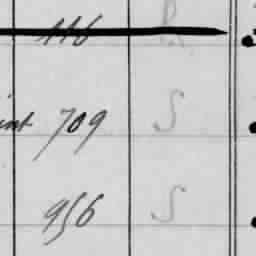 116
int 709 S
956 S